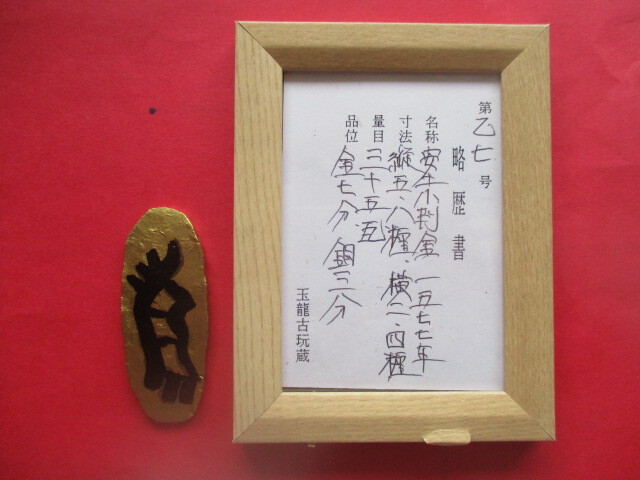 第乙七号
略歴書
名称 安土小判金 一五七七年
寸法 縦五、八糎、横二、四糎
量目 三十五、瓦
品位 金七分、銅三分
玉龍古玩蔵